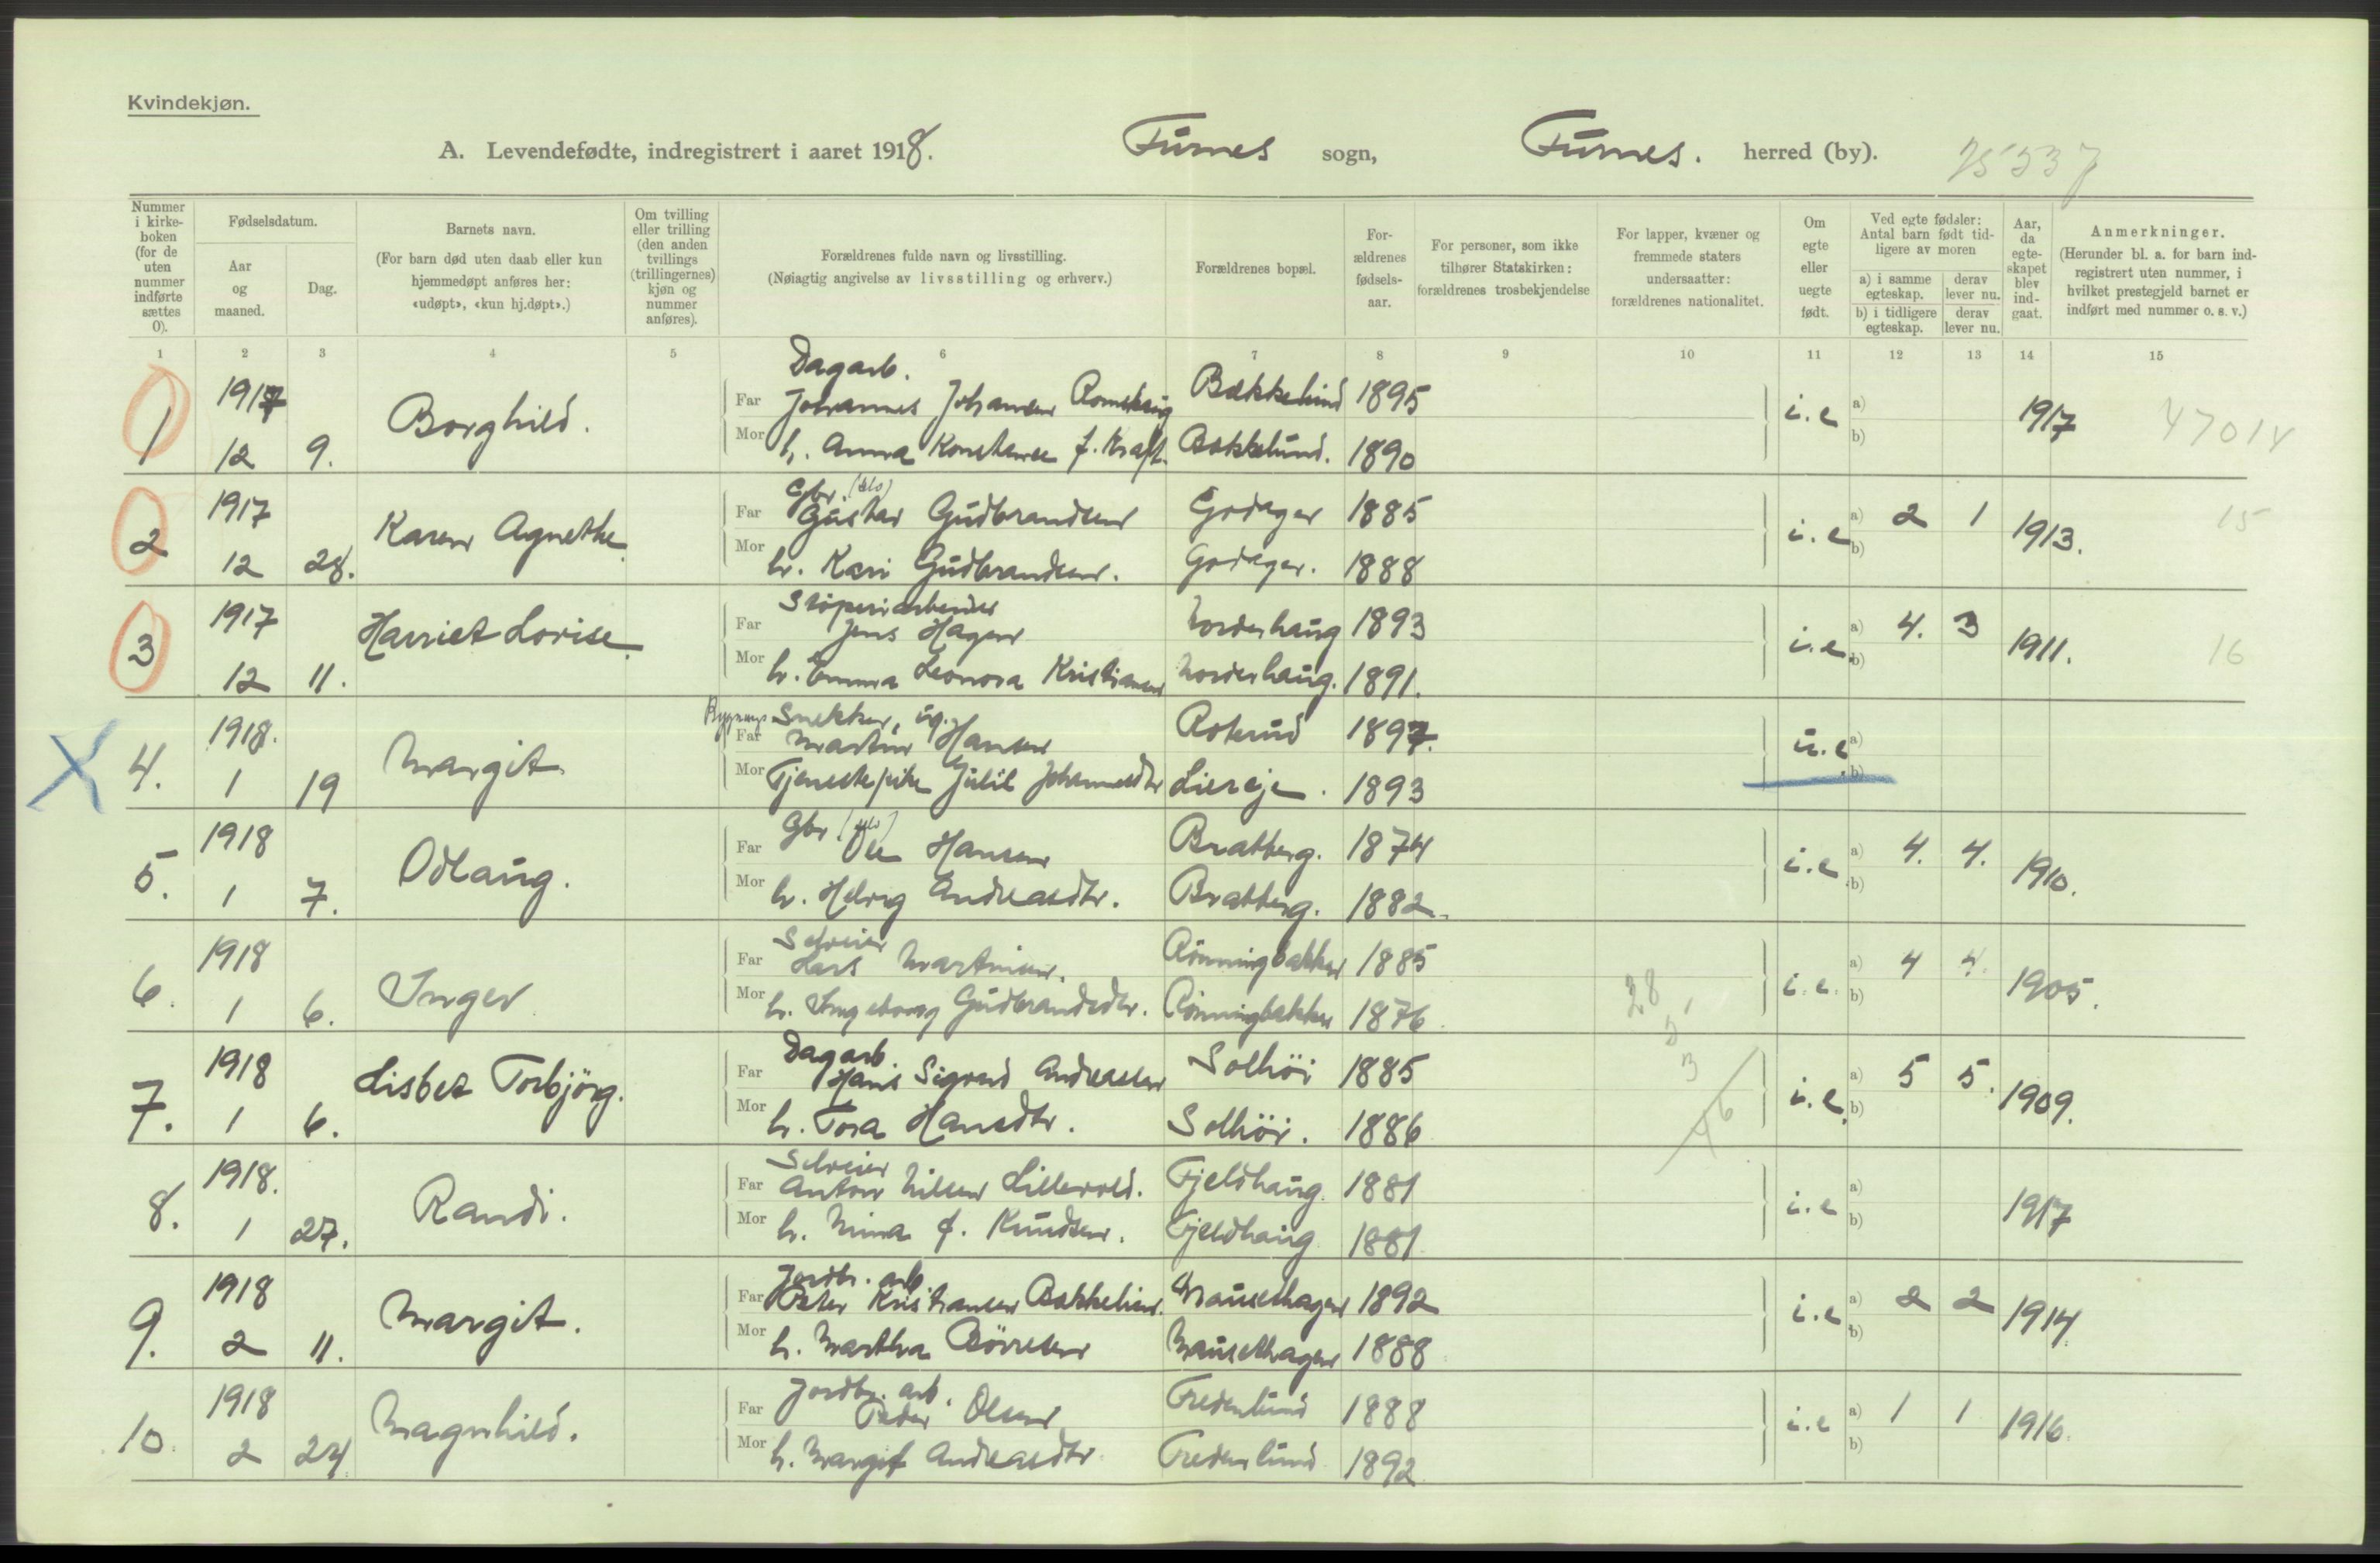 Kvindekjøn.
A. Levendefødte, indregistrert i aaret 1918. Furnes sogn, Furnes. herred (by). 75537
Nummer i kirkeboken (for de uten nummer indførte sættes 0).
Fødselsdatum.
Aar og maaned.
Dag.
Barnets navn.
(For barn død uten daab eller kun hjemmedøpt anføres her: «udøpt», «kun hj.døpt».)
Om tvilling eller trilling (den anden tvillings (trillingernes) kjøn og nummer anføres).
Forældrenes fulde navn og livsstilling.
(Nøiagtig angivelse av livsstilling og erhverv.)
Forældrenes bopæl.
For-ældrenes fødsels-aar.
For personer, som ikke tilhører Statskirken: forældrenes trosbekjendelse
For lapper, kvæner og fremmede staters undersaatter: forældrenes nationalitet.
Om egte eller uegte født.
Ved egte fødsler: Antal barn født tidligere av moren
a) i samme egteskap. derav lever nu.
b) i tidligere egteskap. derav lever nu.
Aar, da egte-skapet blev ind-gaat.
Anmerkninger.
(Herunder bl. a. for barn indregistrert uten nummer, i hvilket prestegjeld barnet er indført med nummer o. s. v.)
1 2 3 4 5 6 7 8 9 10 11 12 13 14 15
Dagarb.
1917 Far Johannes Johansen Romskaug Bækkelund 1895
1 Borghild. i.e a) b) 1917 47014
12 9. Mor h. Anna Konstanse f. Kraft. Bækkelund. 1890
Gbr. (selv)
1917 Far Gustav Gudbrandsen Godager 1885
2 Karen Agnethe. i.e a) 2 1 b) 1913. 15
12 28. Mor h. Kari Gudbrandsen. Godager. 1888
Støperiarbeider
1917 Far Jens Hagen Norderhaug 1893
3 Harriet Lovise. i.e. a) 4. 3 b) 1911. 16
12 11. Mor h. Emma Leonora Kristiansen Norderhaug. 1891.
Bygnings Snekker, ug.
1918. Far Martin Hansen Roterud 1897.
4. Margit u.e a) b)
1 19 Mor Tjenestepike Julie Johannesdtr Liereje. 1893
Gbr. (selv)
1918 Far Ole Hansen Bratberg. 1874
5. Odlaug. i.e a) 4. 4. b) 1910.
1 7. Mor h. Helvig Andreasdtr. Bratberg. 1882.
Selveier
1918 Far Lars Martinsen. Rønningbakken 1885
6. Inger i.e. a) 4 4. b) 1905.
1 6. Mor h. Ingeborg Gudbrandsdtr. Rønningbakken 1876 28
5
3
Dagarb.
1918 Far Hans Sigvard Andreassen Solhöi 1885
7. Lisbet Torbjörg. i.e. a) 5 5. b) 1909.
1 6. Mor h. Tora Hansdtr. Solhöi. 1886
Selveier
1918. Far Anton Nilsen Lillevold. Fjeldhaug. 1881
8. Randi. i.e a) b) 1917
1 27. Mor h. Nina f. Knudsen. Fjeldhaug 1881
Jordbr. arb.
1918 Far Peter Kristiansen Bækkelien. Mausethagen 1892
9. Margit. i.e a) 2 2 b) 1914.
2 11. Mor h. Martha Börresen Mausethagen 1888
Jordbr. arb.
1918 Far Peder Olsen Fredenlund 1888
10. Magnhild. i.e a) 1 1 b) 1916.
2 24 Mor h. Margit Andreasdtr Fredenlund 1892